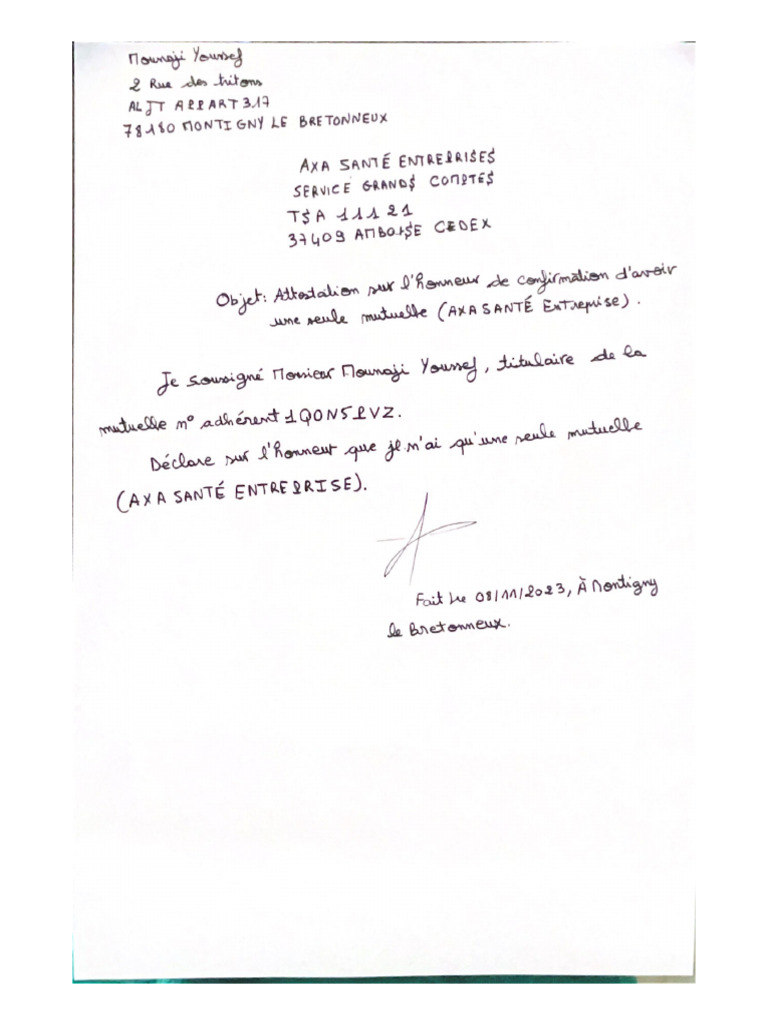 Mounaji Youssef
2 Rue des tritons
ALJT APPART 317
78180 MONTIGNY LE BRETONNEUX
AXA SANTÉ ENTREPRISES
SERVICE GRANDS COMPTES
TSA 11121
37409 AMBOISE CEDEX
Objet: Attestation sur l'honneur de confirmation d'avoir
une seule mutuelle (AXA SANTÉ Entreprise).
Je soussigné Monsieur Mounaji Youssef, titulaire de la
mutuelle n° adhérent 1QON5PVZ.
Déclare sur l'honneur que je n'ai qu'une seule mutuelle
(AXA SANTÉ ENTREPRISE).
Fait Le 08/11/2023, À Montigny
le Bretonneux.